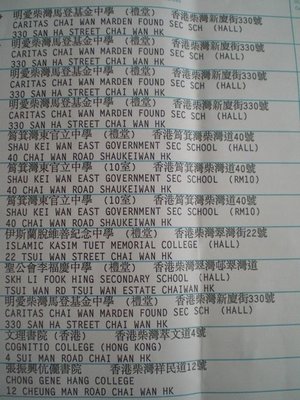 明愛柴灣馬登基金中學 (禮堂) 香港柴灣新廈街330號
CARITAS CHAI WAN MARDEN FOUND SEC SCH (HALL)
330 SAN HA STREET CHAI WAN HK
明愛柴灣馬登基金中學 (禮堂) 香港柴灣新廈街330號
CARITAS CHAI WAN MARDEN FOUND SEC SCH (HALL)
330 SAN HA STREET CHAI WAN HK
明愛柴灣馬登基金中學 (禮堂) 香港柴灣新廈街330號
CARITAS CHAI WAN MARDEN FOUND SEC SCH (HALL)
330 SAN HA STREET CHAI WAN HK
明愛柴灣馬登基金中學 (禮堂) 香港柴灣新廈街330號
CARITAS CHAI WAN MARDEN FOUND SEC SCH (HALL)
330 SAN HA STREET CHAI WAN HK
筲箕灣東官立中學 (禮堂) 香港筲箕灣柴灣道40號
SHAU KEI WAN EAST GOVERNMENT SEC SCHOOL (HALL)
40 CHAI WAN ROAD SHAUKEIWAN HK
筲箕灣東官立中學 (10室) 香港筲箕灣柴灣道40號
SHAU KEI WAN EAST GOVERNMENT SEC SCHOOL (RM10)
40 CHAI WAN ROAD SHAUKEIWAN HK
筲箕灣東官立中學 (10室) 香港筲箕灣柴灣道40號
SHAU KEI WAN EAST GOVERNMENT SEC SCHOOL (RM10)
40 CHAI WAN ROAD SHAUKEIWAN HK
伊斯蘭脫維善紀念中學 (禮堂) 香港柴灣翠灣街22號
ISLAMIC KASIM TUET MEMORIAL COLLEGE (HALL)
22 TSUI WAN STREET CHAI WAN HK
聖公會李福慶中學 (禮堂) 香港柴灣翠灣邨翠灣道
SKH LI FOOK HING SECONDARY SCHOOL (HALL)
TSUI WAN RD TSUI WAN ESTATE CHAIWAN HK
明愛柴灣馬登基金中學 (禮堂) 香港柴灣新廈街330號
CARITAS CHAI WAN MARDEN FOUND SEC SCH (HALL)
330 SAN HA STREET CHAI WAN HK
文理書院(香港) 香港柴灣萃文道4號
COGNITIO COLLEGE (HONG KONG)
4 SUI MAN ROAD CHAI WAN HK
張振興伉儷書院 香港柴灣祥民道12號
CHONG GENE HANG COLLEGE
12 CHEUNG MAN ROAD CHAI WAN HK